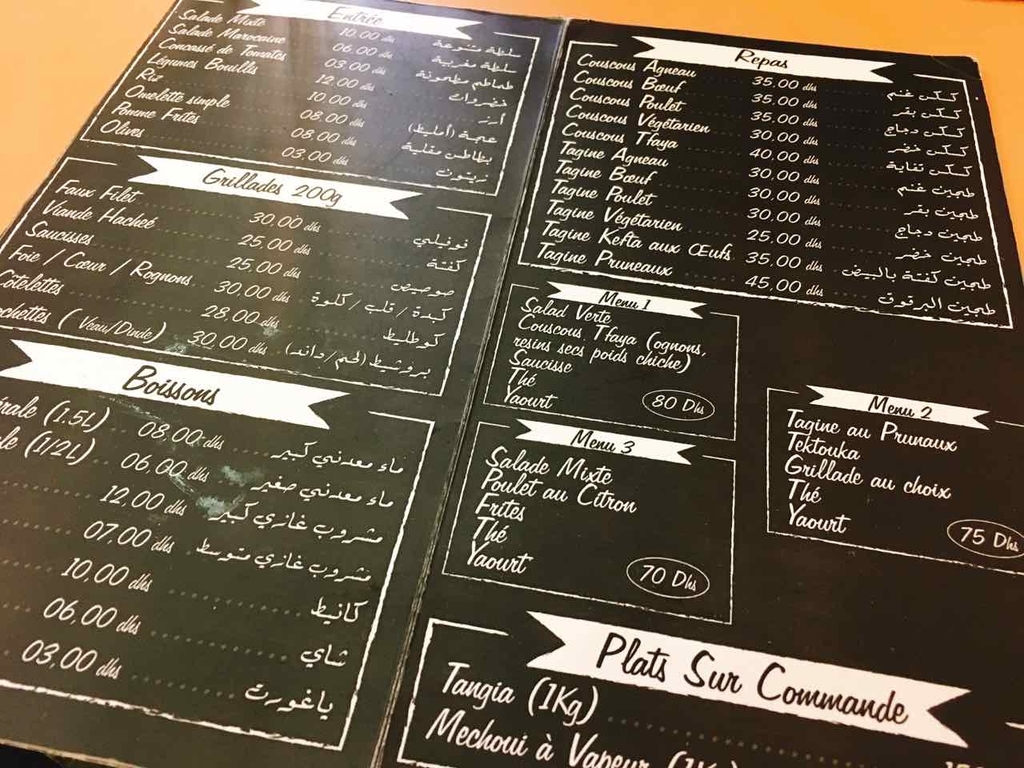 Entrée
Salade Mixte 10.00 dhs سلطة متنوعة
Salade Marocaine 06.00 dhs سلطة مغربية
Concassé de Tomates 03.00 dhs طماطم مطحونة
Légumes Bouillis 12.00 dhs خضروات
Riz 10.00 dhs أرز
Omelette simple 08.00 dhs عجة (أمليط)
Pomme Frites 08.00 dhs بطاطس مقلية
Olives 03.00 dhs زيتون
Grillades 200g
Faux Filet 30.00 dhs فوفيلي
Viande Hacheé 25.00 dhs كفتة
Saucisses 25.00 dhs صوصيص
Foie / Cœur / Rognons 30.00 dhs كبدة / قلب / كلوة
Côtelettes 28.00 dhs كوطليط
ochettes ( Veau/Dinde) 30.00 dhs بروشيط (لحم / داند)
Boissons
érale (1.5L) 08.00 dhs ماء معدني كبير
le (1/2L) 06.00 dhs ماء معدني صغير
12.00 dhs مشروب غازي كبير
07.00 dhs مشروب غازي متوسط
10.00 dhs كانيط
06.00 dhs شاي
03.00 dhs ياغورت
Repas
Couscous Agneau 35.00 dhs كسكس غنم
Couscous Bœuf 35.00 dhs كسكس بقر
Couscous Poulet 35.00 dhs كسكس دجاج
Couscous Végétarien 30.00 dhs كسكس خضر
Couscous Tfaya 40.00 dhs كسكس تفاية
Tagine Agneau 30.00 dhs طجين غنم
Tagine Bœuf 30.00 dhs طجين بقر
Tagine Poulet 30.00 dhs طجين دجاج
Tagine Végétarien 25.00 dhs طجين خضر
Tagine Kefta aux Œufs 35.00 dhs طجين كفتة بالبيض
Tagine Pruneaux 45.00 dhs طجين البرقوق
Menu 1
Salad Verte
Couscous Tfaya (ognons,
resins secs poids chiche)
Saucisse
Thé
Yaourt
80 Dhs
Menu 2
Tagine au Prunaux
Tektouka
Grillade au choix
Thé
Yaourt
75 Dhs
Menu 3
Salade Mixte
Poulet au Citron
Frites
Thé
Yaourt
70 Dhs
Plats Sur Commande
Tangia (1Kg)
Mechoui à Vapeur